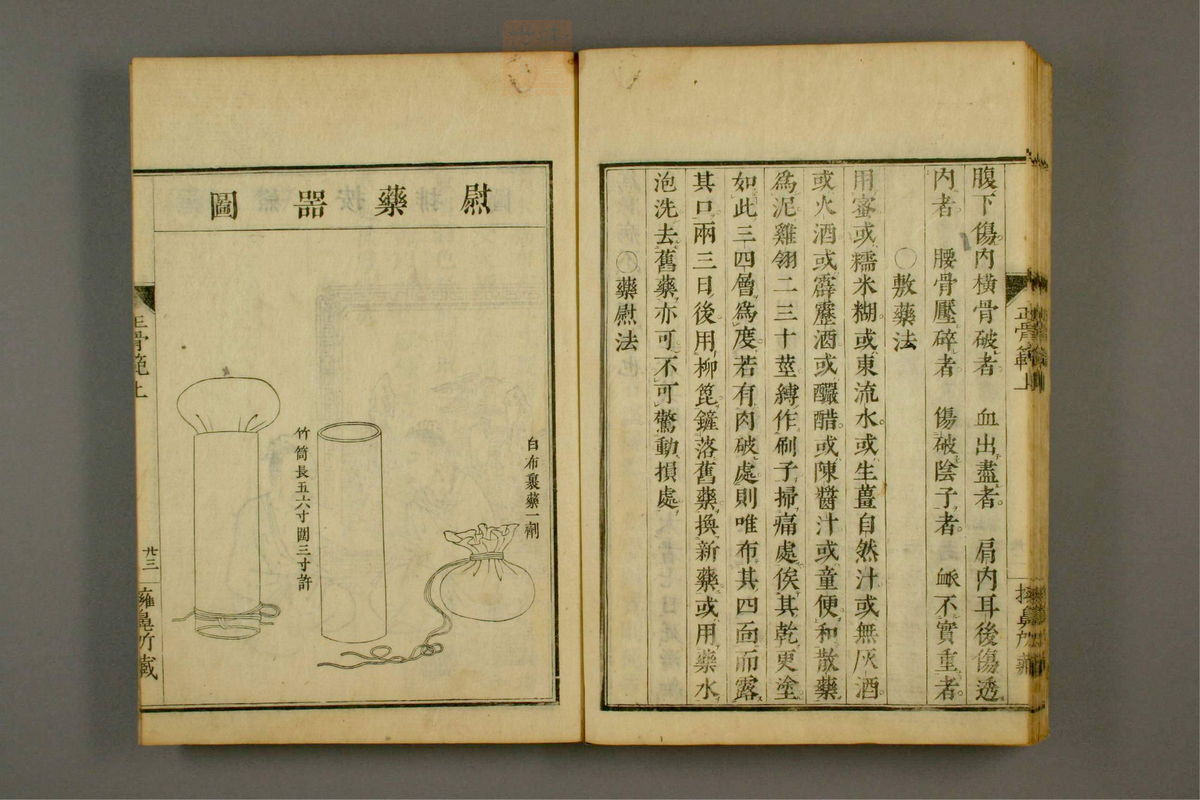 腹下傷內橫骨破者　血出盡者　肩內耳後傷透
內者　腰骨壓碎者　傷破陰子者　脈不實重者
○敷藥法
用蜜或糯米糊或東流水或生薑自然汁或無灰酒
或火酒或霹靂酒或釅醋或陳醬汁或童便和散藥
爲泥雞翎二三十莖縛作刷子掃痛處俟其乾更塗
如此三四層爲度若有肉破處則唯布其四面而露
其口兩三日後用柳篦鏟落舊藥換新藥或用藥水
泡洗去舊藥亦可不可驚動損處
○藥熨法
正骨範上
熨藥器圖
白布裹藥一劑
竹筒長五六寸圍三寸許
正骨範上
廿三
擁鼻所藏